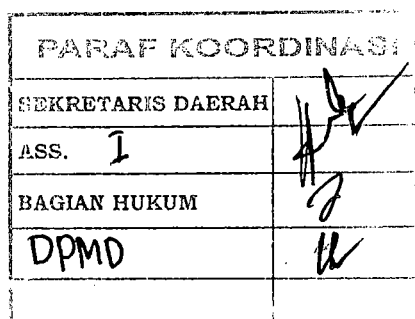 PARAF KOORDINASI
SEKRETARIS DAERAH
ASS. I
BAGIAN HUKUM
DPMD